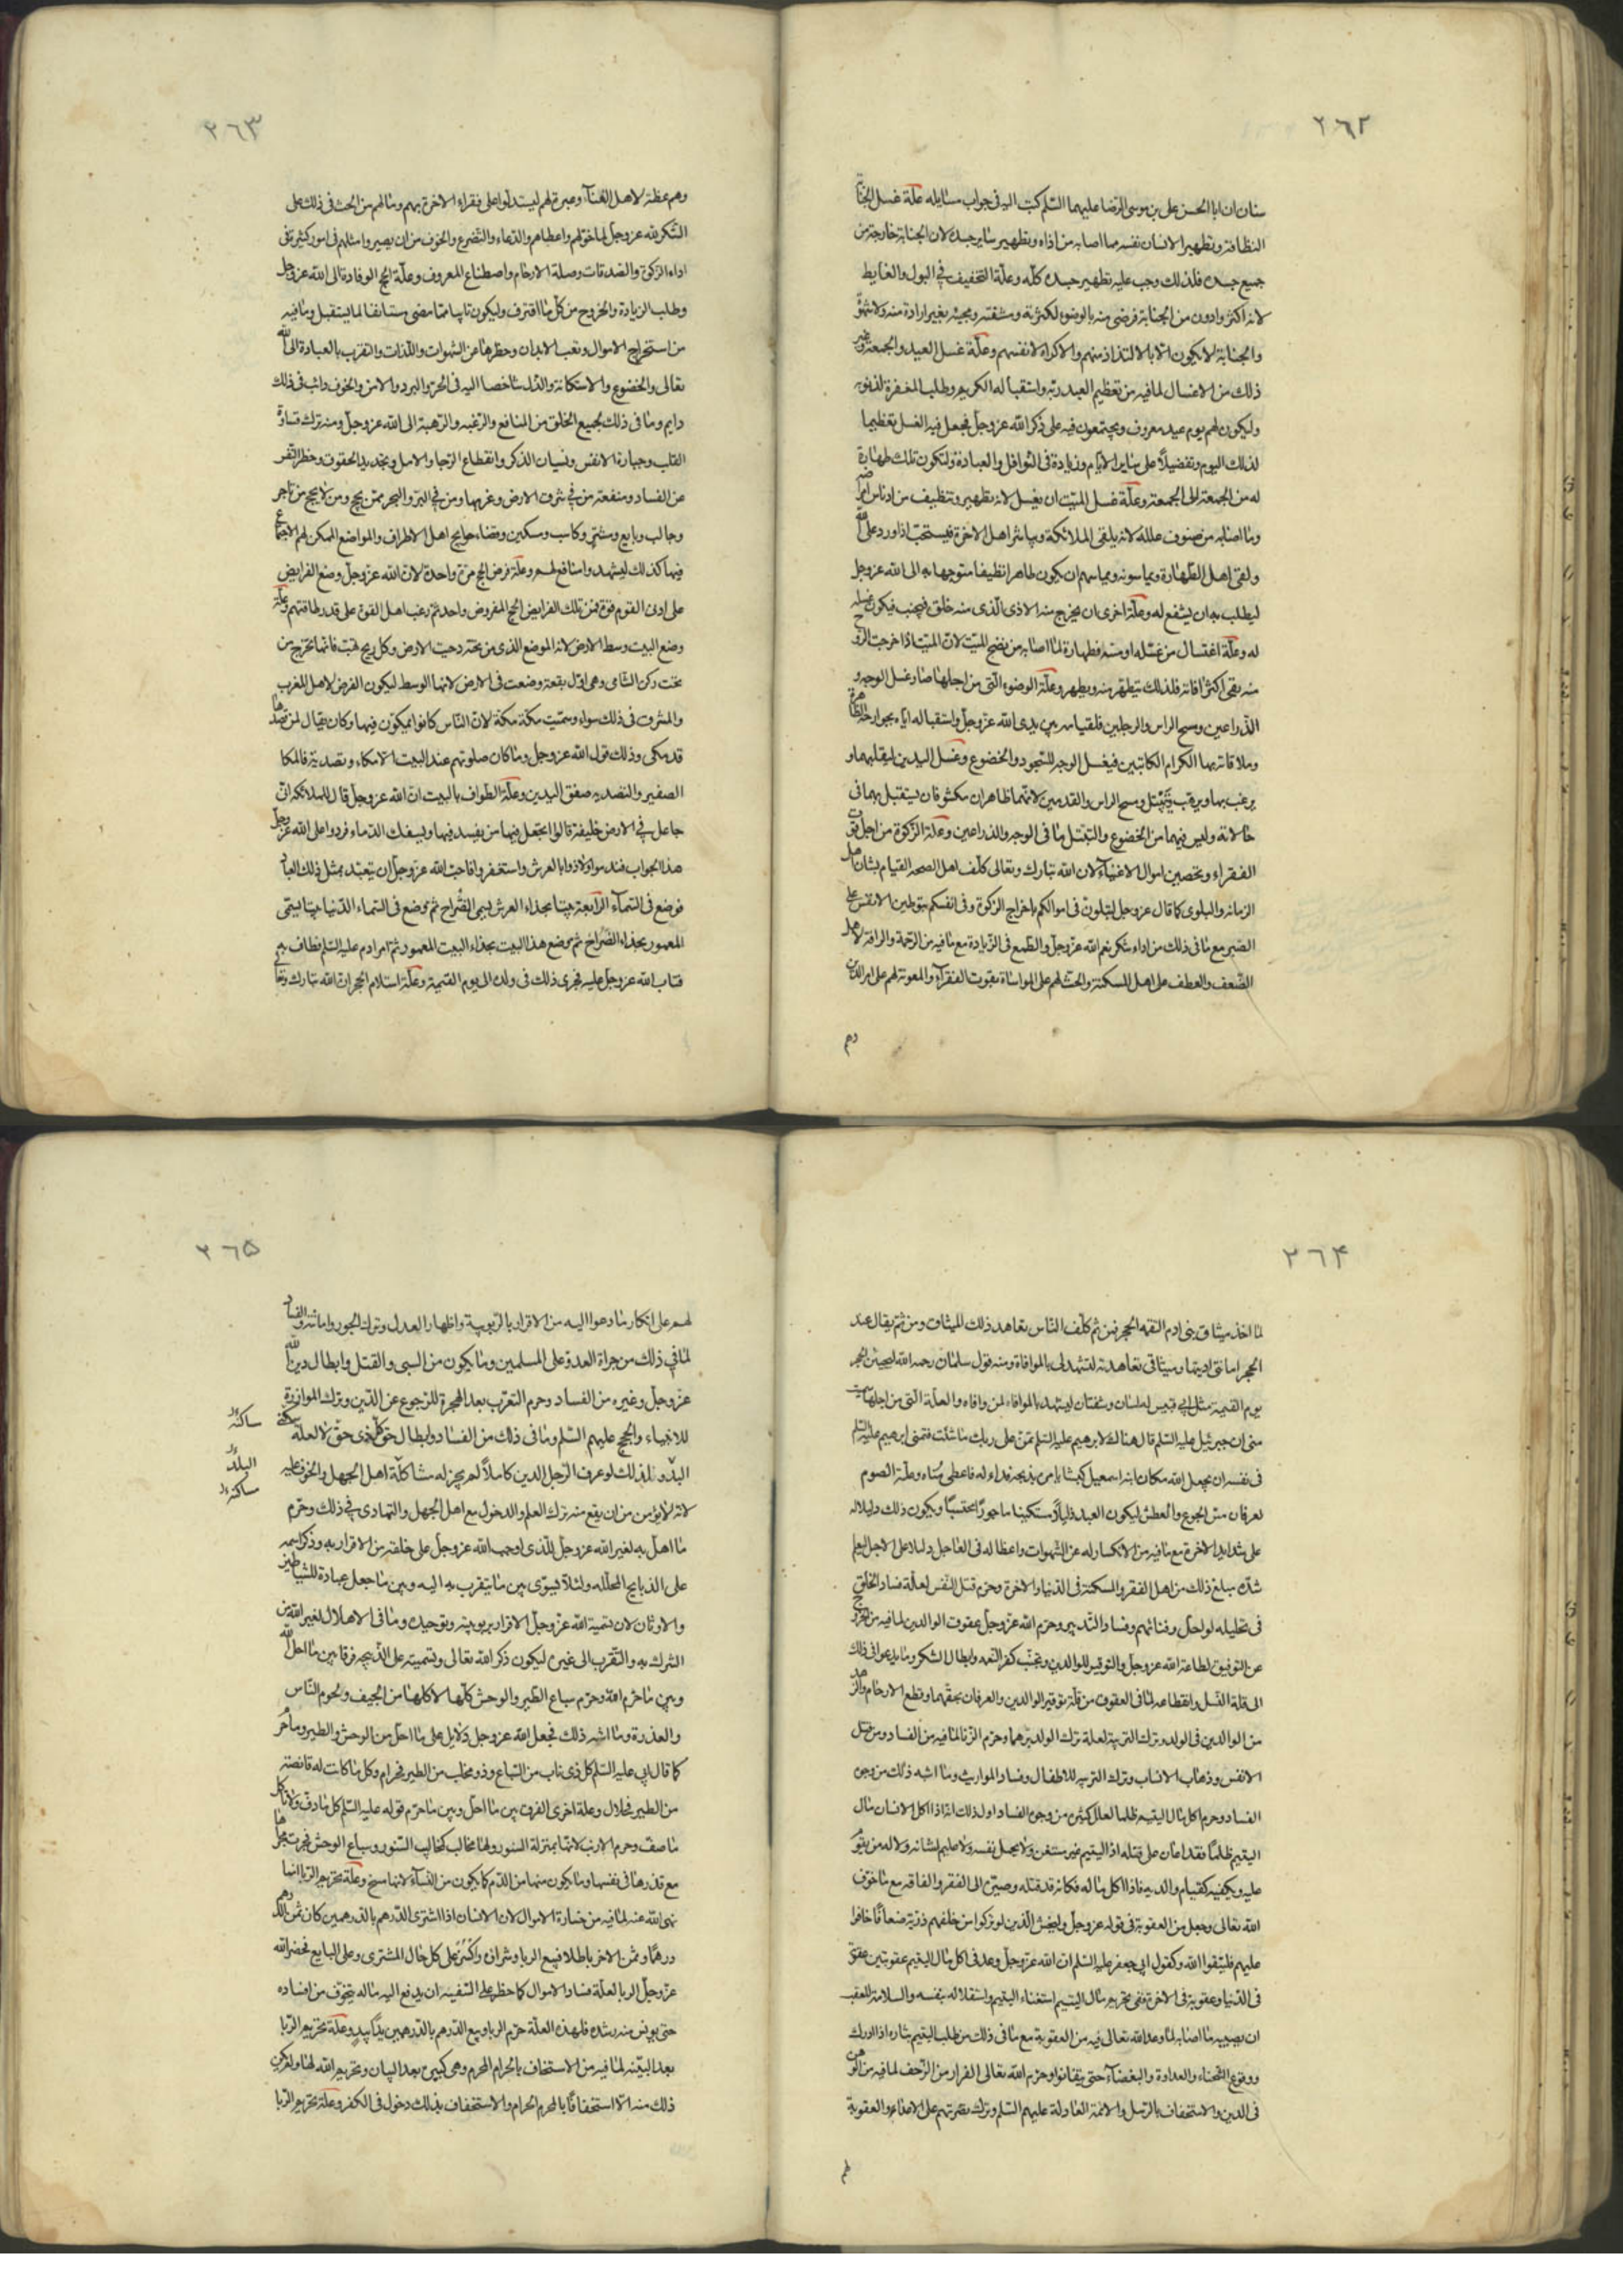 ٢٦٢
سنان ان ابا الحسن على بن موسى الرضا عليهما السّلم كتب اليه فى جواب مسايله علّة غسل الجنابة
النظافة وتطهير الانسان نفسه مما اصابه من اذاه وتطهير ساير جسده لان الجنابة خارجة من
جميع جسده فلذلك وجب عليه تطهير جسده كلّه وعلّة التخفيف فى البول والغايط
لانه اكثر وادوم من الجنابة فرضى منه بالوضوء لكثرته ومشقته ومجيئه بغير ارادة منه ولا شهوة
والجنابة لا يكون الّا بالالتذاذ منهم والاكراه لانفسهم وعلّة غسل العيد والجمعة وغير
ذلك من الاغسال لما فيه من تعظيم العبد ربّه واستقباله الكريم وطلب المغفرة لذنوبه
وليكون لهم يوم عيد معروف ويجتمعون فيه على ذكر الله عز وجل فجعل فيه الغسل تعظيما
لذلك اليوم وتفضيلاً على ساير الايّام وزيادة فى النوافل والعبادة ولتكون تلك طهارة
له من الجمعة الى الجمعة وعلّة غسل الميّت ان يغسل لانه يطهر وتنظيف من ادناس امراضه
وما اصابه من صنوف علله لانه يلقى الملائكة ويباشر اهل الاخرة فيستحبّ اذا ورد على الله
ولقى اهل الطّهارة ويماسونه ويماسهم ان يكون طاهرا نظيفا متوجها به الى الله عز وجل
ليطلب به ان يشفع له وعلّة اخرى ان يخرج منه الاذى الّذى منه خلق فيجنب فيكون غسله
له وعلّة اغتسال من غسّله او مسّه فطهارة لما اصابه من نضح الميّت لانّ الميّت اذا خرجت الروح
منه بقى اكثر افاته فلذلك يتطهر منه ويطهر وعلّة الوضوء الّتى من اجلها صار غسل الوجه و
الذّراعين ومسح الراس والرجلين فلقيامه بين يدى الله عزّ وجلّ واستقباله ايّاه بجوارحه الظاهرة
وملاقاته بها الكرام الكاتبين فيغسل الوجه للسّجود والخضوع وغسل اليدين ليقلبهما و
يرغب بهما ويرهب ويتبتل ومسح الراس والقدمين لانّهما ظاهران مكشوفان يستقبل بهما فى
حالاته وليس فيهما من الخضوع والتبتّل ما فى الوجه والذراعين وعلّة الزّكوة من اجل قوت
الفقراء وتحصين اموال الاغنيآء لان الله تبارك وتعالى كلّف اهل الصحه القيام بشان اهل
الزمانه والبلوى كما قال عزوجل لتبلونّ فى اموالكم باخراج الزكوة وفى انفسكم بتوطين الانفس على
الصبر مع ما فى ذلك من اداء شكر نعم الله عزّ وجلّ والطّمع فى الزّيادة مع ما فيه من الرّحمة والرافة لاهل
الضّعف والعطف على اهل المسكنة والحثّ لهم على المواساة وتقويت الفقرآء والمعونة لهم على امر الدين
وهم
٢٦٣
وهم عظة لاهل الغنآء وعبرة لهم ليستدلّوا على فقراء الاخرة بهم وما لهم من الحث فى ذلك على
الشّكر لله عز وجلّ لما خوّلهم واعطاهم والدّعاء والتّضرع والخوف من ان يصيروا مثلهم فى امور كثيرة فى
اداء الزكوة والصّدقات وصلة الارحام واصطناع المعروف وعلّة الحج الوفادة الى الله عز وجل
وطلب الزيادة والخروج من كلّ ما اقترف وليكون تايبا ممّا مضى مستانفا لما يستقبل وما فيه
من استخراج الاموال وتعب الابدان وحظرها عن الشهوات واللّذات والتقرب بالعبادة الى الله
تعالى والخضوع والاستكانة والذّل شاخصا اليه فى الحرّ والبرد والامن والخوف دائب فى ذلك
دايم وما فى ذلك لجميع الخلق من المنافع والرّغبه والرّهبة الى الله عز وجلّ ومنه ترك قساوة
القلب وجسارة الانفس ونسيان الذكر وانقطاع الرّجا والامل وتجديد الحقوق وحظر النّفس
عن الفساد ومنفعة من فى شرق الارض وغربها ومن فى البرّ والبحر ممّن يحج ومن لا يحج من تاجر
وجالب وبايع ومشترٍ وكاسب ومسكين وقضاء حوايج اهل الاطراف والمواضع الممكن لهم الاجتماع
فيها كذلك ليشهدوا منافع لهم وعلّة فرض الحج مرّة واحدة لانّ الله عز وجلّ وضع الفرايض
على ادنى القوم قوة فمن تلك الفرايض الحج المفروض واحد ثمّ رغب اهل القوة على قدر طاقتهم وعلّة
وضع البيت وسط الارض لانه الموضع الذى من تحته دحيت الارض وكل ريح تهبّ فانها تخرج من
تحت ركن الشّامى وهى اوّل بقعة وضعت فى الارض لانها الوسط ليكون الفرض لاهل المغرب
والمشرق فى ذلك سواء وسمّيت مكّة مكّة لانّ النّاس كانوا يمكون فيها وكان يقال لمن قصدها
قد مكى وذلك قول الله عز وجل وما كان صلوتهم عند البيت الّا مكاء وتصدية فالمكا
الصفير والتصديه صفق اليدين وعلّة الطواف بالبيت انّ الله عز وجلّ قال للملائكة انى
جاعل فى الارض خليفة قالوا اتجعل فيها من يفسد فيها ويسفك الدّماء فردوا على الله عزّ وجلّ
هذا الجواب فندموا ولاذوا بالعرش واستغفروا فاحبّ الله عزّ وجلّ ان يتعبّد بمثل ذلك العباد
فوضع فى السّمآء الرّابعة بيتا بحذاء العرش يسمى الضّراح ثمّ وضع فى السّماء الدّنيا بيتا يسمّى
المعمور بحذاء الضّراح ثمّ وضع هذا البيت بحذاء البيت المعمور ثمّ امر ادم عليه السّلم فطاف به
فتاب الله عز وجلّ عليه فجرى ذلك فى ولده الى يوم القيمة وعلّة استلام الحجر انّ الله تبارك وتعالى
٢٦۴
لمّا اخذ ميثاق بنى ادم التقمه الحجر فمن ثم كلّف النّاس تعاهد ذلك الميثاق ومن ثمّ يقال عند
الحجر امانتى ادّيتها وميثاقى تعاهدته لتشهد لى بالموافاة ومنه قول سلمان رحمه الله ليجيئنّ الحجر
يوم القيمة مثل ابى قبيس له لسان وشفتان ليشهد بالموافاة لمن وافاه والعلّة الّتى من اجلها سميت
منى ان جبرئيل عليه السّلم قال هناك لابرهيم عليه السّلم تمنّ على ربك ما شئت فتمنى ابرهيم عليه السّلم
فى نفسه ان يجعل الله مكان ابنه اسمعيل كبشا يامره بذبحه فداء له فاعطى مُناه وعلّة الصوم
لعرفان مسّ الجوع والعطش ليكون العبد ذليلاً مستكينا ماجورًا محتسبًا ويكون ذلك دليلا له
على شدايد الاخرة مع ما فيه من الانكسار له عن الشهوات واعظا له فى العاجل دليلا على الاجل ليعلم
شدّه مبلغ ذلك من اهل الفقر والمسكنة فى الدّنيا والاخرة وحرم قتل النّفس لعلّة فساد الخلق
فى تحليله لو احلّ وفنائهم وفساد التّدبير وحرّم الله عزّ وجلّ عقوق الوالدين لما فيه من الخروج
عن التوفيق لطاعة الله عز وجلّ والتوقير للوالدين وتجنّب كفر النّعمه وابطال الشكر وما يدعوا فى ذلك
الى قلة النّسل وانقطاعه لما فى العقوق من قلّة توقير الوالدين والعرفان بحقّهما وقطع الارحام والزهد
من الوالدين فى الولد وترك التربية لعلة ترك الولد برّهما وحرّم الزّنا لما فيه من الفساد من قتل
الانفس وذهاب الانساب وترك التربيه للاطفال وفساد المواريث وما اشبه ذلك من وجوه
الفساد وحرم اكل مال اليتيم ظلما لعلل كثيرة من وجوه الفساد اول ذلك انّه اذا اكل الانسان مال
اليتيم ظلمًا فقد اعان على قتله اذ اليتيم غير مستغن ولا يحمل نفسه ولا عليم لشانه ولا له من يقوم
عليه ويكفيه كقيام والديه فاذا اكل ماله فكانه قد قتله وصيّره الى الفقر والفاقه مع ما خوّف
الله تعالى وجعل من العقوبة فى قوله عز وجلّ وليخش الّذين لو تركوا من خلفهم ذريّة ضعافًا خافوا
عليهم فليتّقوا الله وكقول ابى جعفر عليه السّلم انّ الله عزّ وجلّ وعد فى اكل مال اليتيم عقوبتين عقوبة
فى الدّنيا وعقوبة فى الاخرة ففى تحريم مال اليتيم استغناء اليتيم واستقلاله بنفسه والسلامة للعقب
ان يصيبه ما اصابه لما وعد الله تعالى فيه من العقوبة مع ما فى ذلك من طلب اليتيم بثاره اذا ادرك
ووقوع الشّحناء والعداوة والبغضآء حتى يتفانوا وحرّم الله تعالى الفرار من الزّحف لما فيه من الوهن
فى الدين والاستخفاف بالرّسل والائمة العادلة عليهم السّلم وترك نصرتهم على الاعداء والعقوبة
لهم
٢٦۵
لهم على انكار ما دعوا اليه من الاقرار بالرّبوبية واظهار العدل وترك الجور واماتته والفساد
لما فى ذلك من جراة العدوّ على المسلمين وما يكون من السبى والقتل وابطال دين الله
عزّ وجلّ وغيره من الفساد وحرم التعرّب بعد الهجرة للرّجوع عن الدّين وترك الموازرة
للانبياء والحجج عليهم السّلم وما فى ذلك من الفساد وابطال حقّ كلّ ذى حقّ لا لعلّة سكنى
البدو ولذلك لو عرف الرّجل الدين كاملاً لم يجز له مساكنة اهل الجهل والخوف عليه
لانه لا يؤمن من ان يقع منه ترك العلم والدخول مع اهل الجهل والتمادى فى ذلك وحرّم
ما اهلّ به لغير الله عز وجلّ للّذى اوجب الله عز وجلّ على خلقه من الاقرار به وذكر اسمه
على الذبايح المحلّله ولئلاّ يسوّى بين ما يتقرب به اليه وبين ما جعل عبادة للشّياطين
والاوثان لان تسمية الله عزّ وجلّ الاقرار بربوبيته وتوحيده وما فى الاهلال لغير الله من
الشرك به والتّقرب الى غيره ليكون ذكر الله تعالى وتسميته على الذّبيحه فرقا بين ما احلّ الله
وبين ما حرّم الله وحرّم سباع الطّير والوحش كلّها لاكلها من الجيف ولحوم النّاس
والعذرة وما اشبه ذلك فجعل الله عز وجل دلايل على ما احلّ من الوحش والطير وما حرّم
كما قال ابى عليه السّلم كل ذى ناب من السّباع وذو مخلب من الطير فحرام وكل ما كانت له قانصة
من الطير فحلال وعلة اخرى الفرق بين ما احلّ وبين ما حرّم قوله عليه السّلم كل ما دفّ ولا تاكل
ما صفّ وحرم الارنب لانّها بمنزلة السنور ولها مخالب كمخالب السّنور وسباع الوحش فجرت مجراها
مع قذرها فى نفسها وما يكون منها من الدّم كما يكون من النّسآء لانها مسخ وعلّة تحريم الرّبا انما
نهى الله عنه لما فيه من فساد الاموال لان الانسان اذا اشترى الدّرهم بالدّرهمين كان ثمن الدّرهم
درهمًا وثمن الاخر باطلا فبيع الربا وشراؤه وكسٌ على كل حال المشترى وعلى البايع فحضر الله
عزّ وجلّ الربا لعلّة فساد الاموال كما حظر على السّفيه ان يدفع اليه ماله يتخوّف من افساده
حتى يونس منه رشده فلهذه العلّة حرّم الربا وبيع الدّرهم بالدّرهمين يدًا بيدٍ وعلّة تحريم الرّبا
بعد البيّنه لما فيه من الاستخفاف بالحرام المحرم وهى كبيرة بعد البيان وتحريم الله لها ولم يكن
ذلك منه الّا استخفافًا بالمحرم الحرام والاستخفاف بذلك دخول فى الكفر وعلّة تحريم الرّبا
ساكنة
البلد
ساكنه